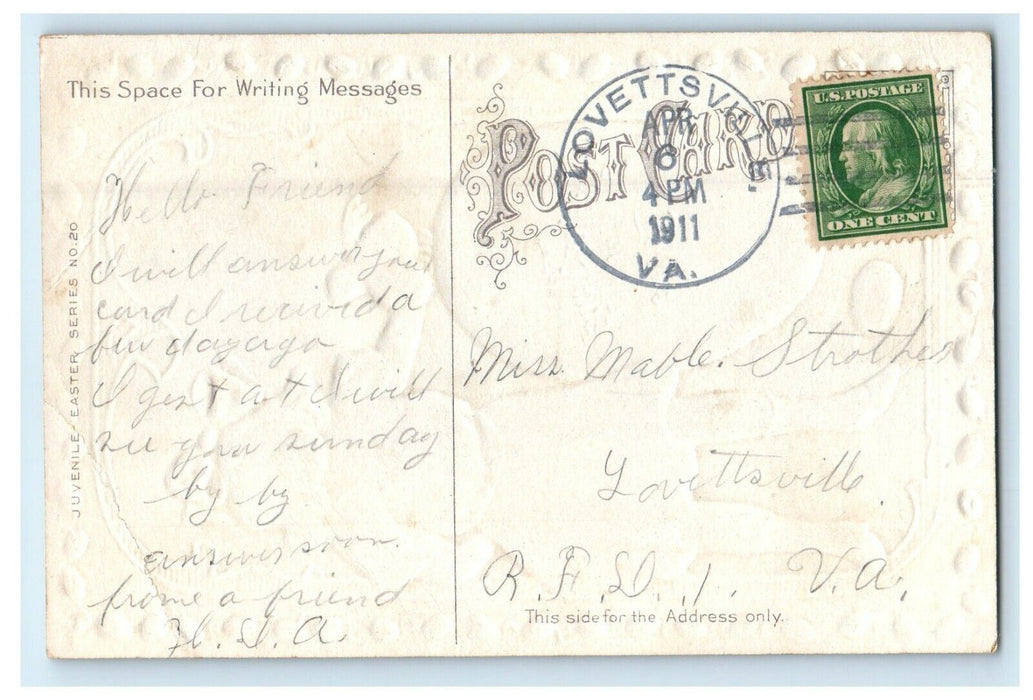 This Space For Writing Messages
POST CARD
LOVETTSVILLE
APR
6
4 PM
1911
VA.
U.S. POSTAGE
ONE CENT
JUVENILE EASTER SERIES NO. 20
Hello Friend
I will answer your
card I recived a
few days ago
I gest at I will
see you sunday
by by
answer soon.
frome a friend
H. D. A.
Miss Mable. Strother
Lovettsville.
R. F. D. 1. V. a.
This side for the Address only.